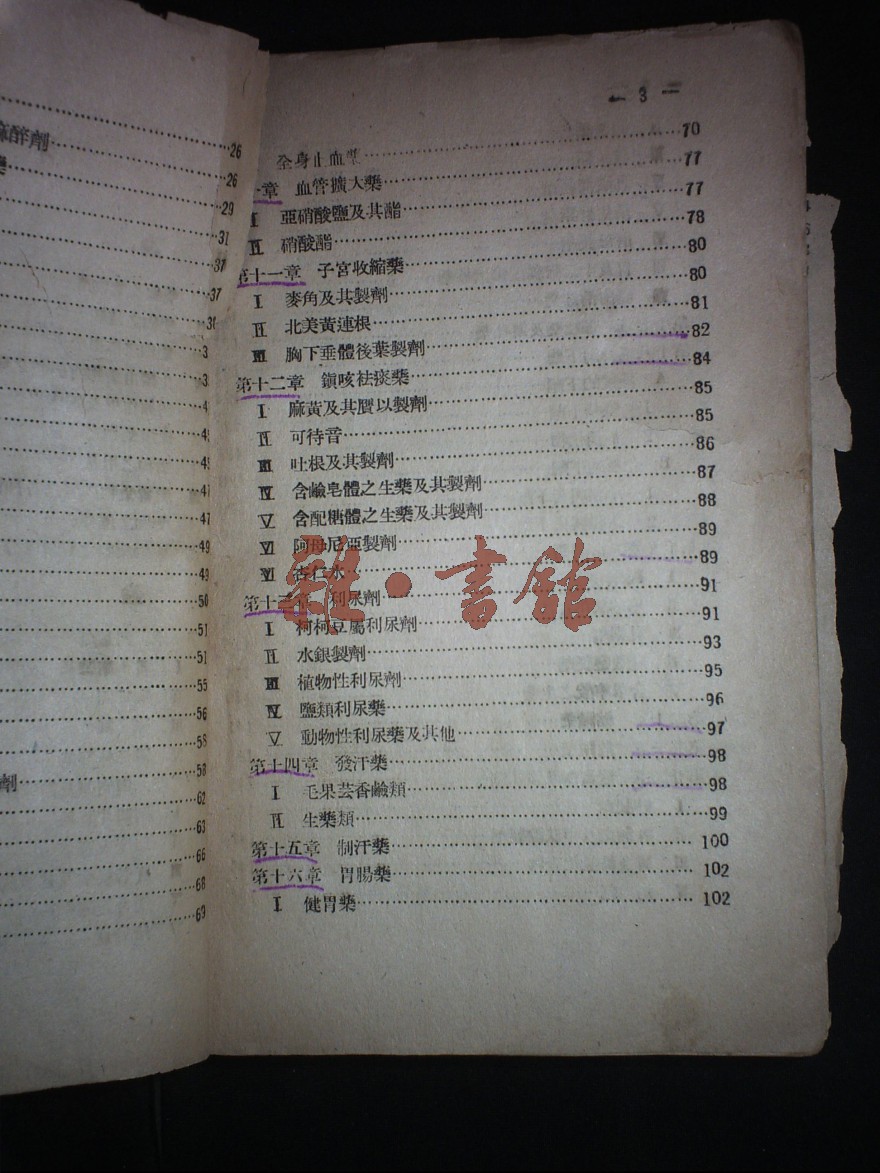 麻醉劑……26
藥……26
29
31
37
37
47
47
49
49
50
51
51
55
56
58
劑……58
62
63
66
68
69
— 3 —
全身止血藥……70
章 血管擴大藥……77
I 亞硝酸鹽及其酯……77
II 硝酸酯……78
第十一章 子宮收縮藥……80
I 麥角及其製劑……80
II 北美黃連根……81
III 胸下垂體後葉製劑……82
第十二章 鎮咳祛痰藥……84
I 麻黃及其贋以製劑……85
II 可待音……85
III 吐根及其製劑……86
IV 含鹼皂體之生藥及其製劑……87
V 含配糖體之生藥及其製劑……88
VI 阿母尼亞製劑……89
VI 杏仁水……89
第十三章 利尿劑……91
I 柯柯豆屬利尿劑……91
II 水銀製劑……93
III 植物性利尿劑……95
IV 鹽類利尿藥……96
V 動物性利尿藥及其他……97
第十四章 發汗藥……98
I 毛果芸香鹼類……98
II 生藥類……99
第十五章 制汗藥……100
第十六章 胃腸藥……102
I 健胃藥……102
雜·書館